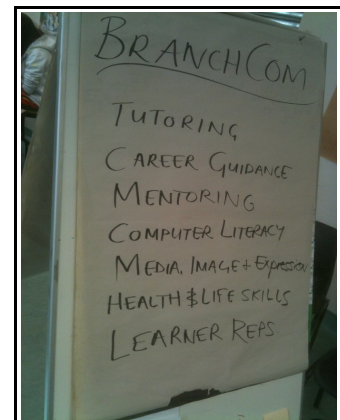 BRANCHCOM
TUTORING
CAREER GUIDANCE
MENTORING
COMPUTER LITERACY
MEDIA, IMAGE + Expression
HEALTH & LIFE SKILLS
LEARNER REPS